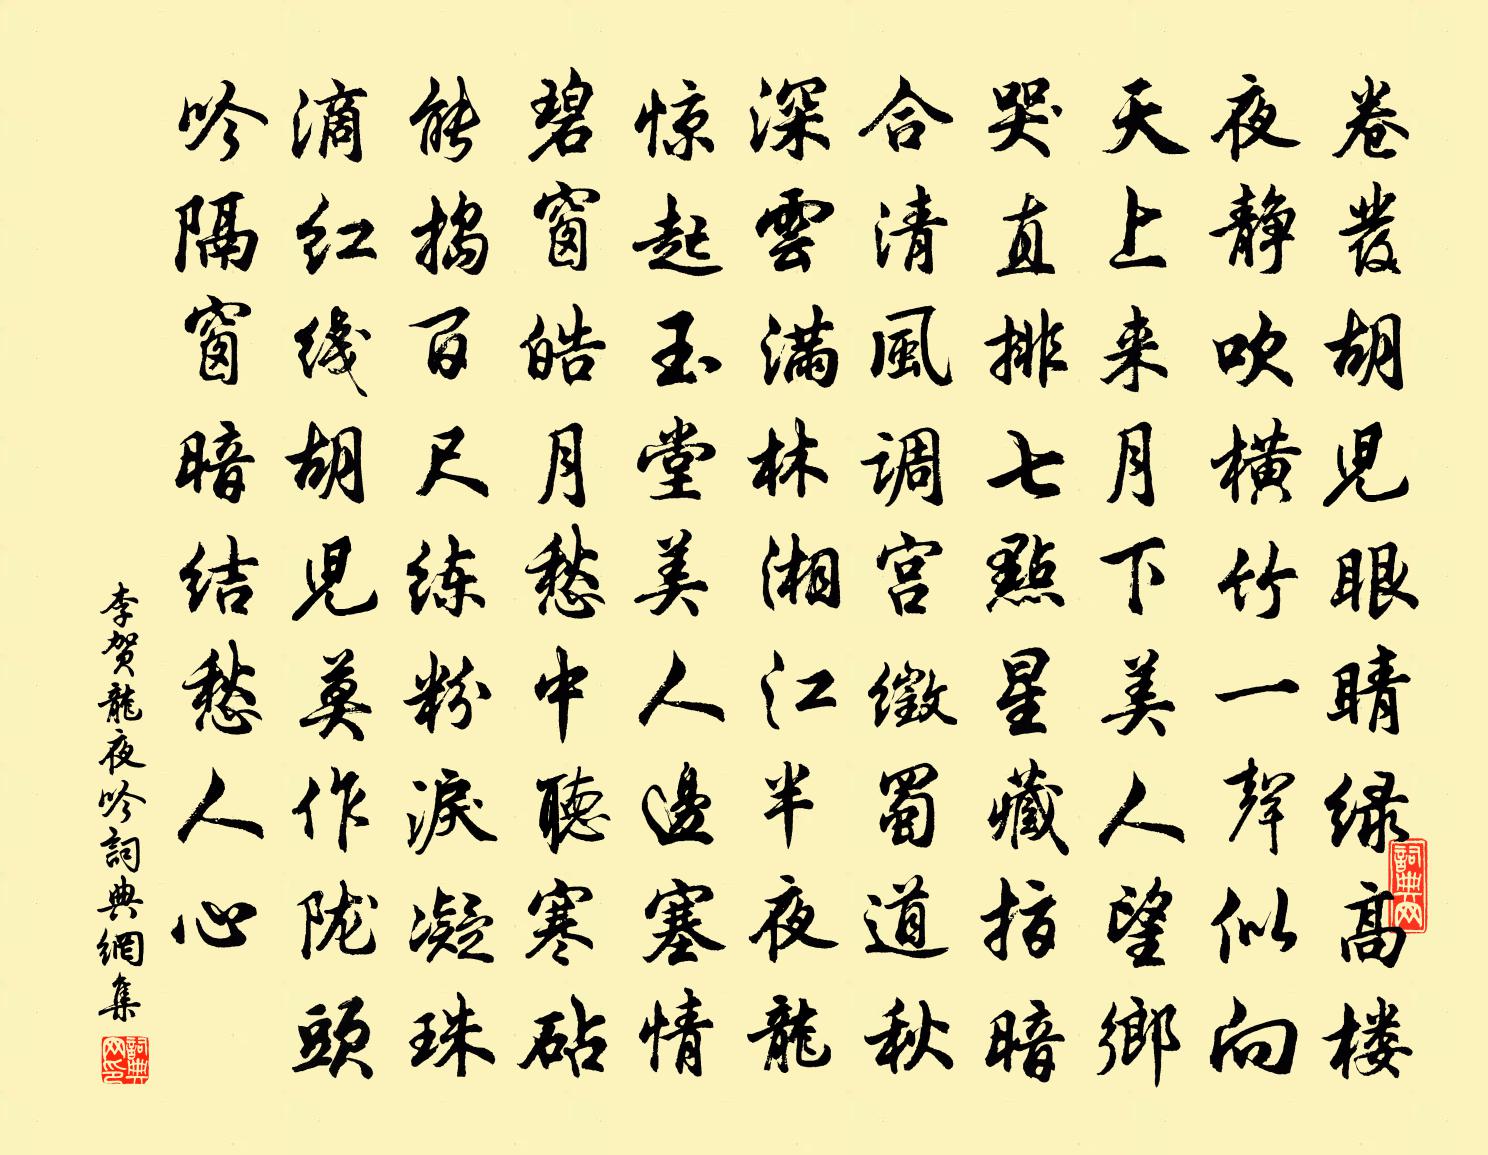 卷发胡児眼晴緑高楼
夜静吹横竹一聲似向
天上来月下美人望鄉
哭直排七點星藏指暗
合清風调宫徵蜀道秋
深雲满林湘江半夜龍
惊起玉堂美人邊塞情
碧窗皓月愁中聴寒砧
能捣百尺练粉淚凝珠
滴红线胡児莫作陇頭
吟隔窗暗结愁人心
李贺龍夜吟詞典網集
詞典网
詞典网